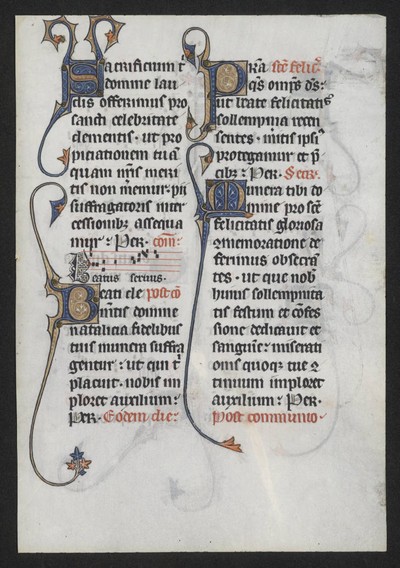 Sacrificium t̄
domine lau
dis offerimus pro
sancti celebritate
clementis · ut pro
pitiationem tuā
quam nr̄is meri
tis non meremur · pii
suffragatoris inter
cessionibꝫ assequa
mur : Per · com̄:
Beatus servus.
Beati cle post cō
mētis domine
natalicia fidelibus
tuis munera suffra
gentur : ut qui t̄
placuit · nobis im
ploret auxilium :
Per · Eodem die :
Or̄a sc̄e felic̄
P̄s q̄s omp̄s ds̄ :
ut beate felicitatis
sollempnia recen
sentes · meritis ipsi⁹
protegamur et p̄
cibꝫ : Per · Secr̄.
Munera tibi do
mine pro sc̄e
felicitatis gloriosa
ꝯmemoratione de
ferimus obsecrā
tes · ut que nob̄
huius sollempnita
tis festum et cōfes
sione dedicavit et
sanguine : miserati
onis quoqꝫ tue ꝯ
tinuum imploret
auxilium : Per ·
Post communio ·